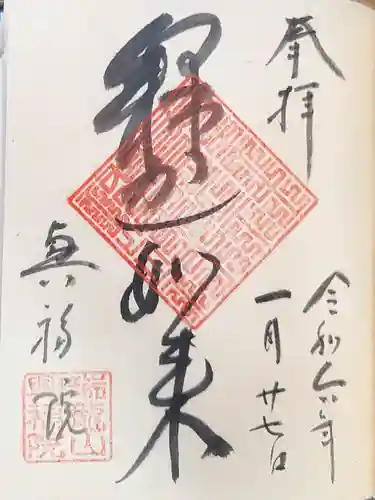 奉拝
令和六年
一月廿七日
釋迦如来
真福院